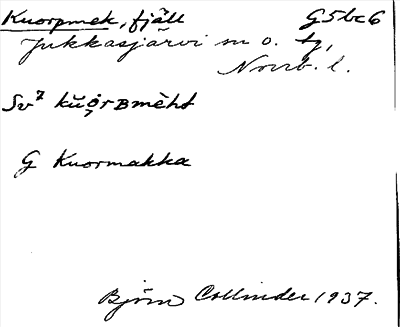 Kuorpmek, fjäll G5bc6
Jukkasjärvi sn o. tg,
Norrb. l.
Sv⁷ kŭo̭rBmèht
G Kuormakka
Björn Collinder 1937.